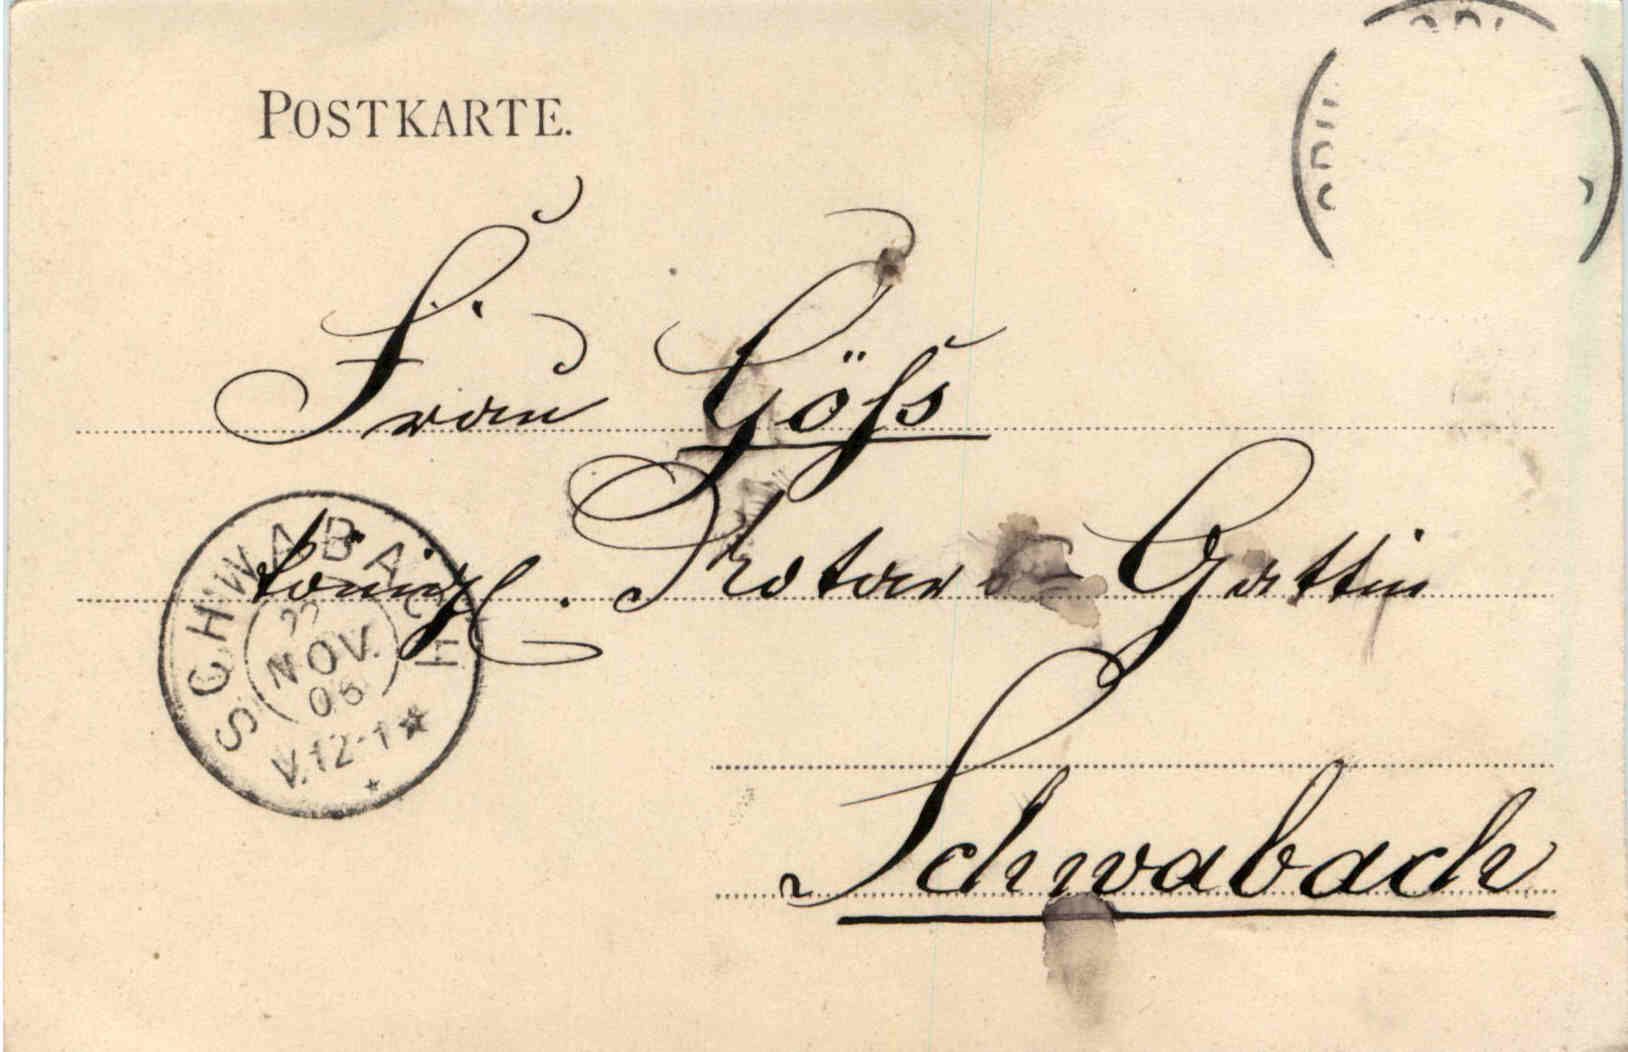 POSTKARTE.
Frau Göſs
königl. Notars Gattin
Schwabach
SCHWABACH
NOV.
V.12-1